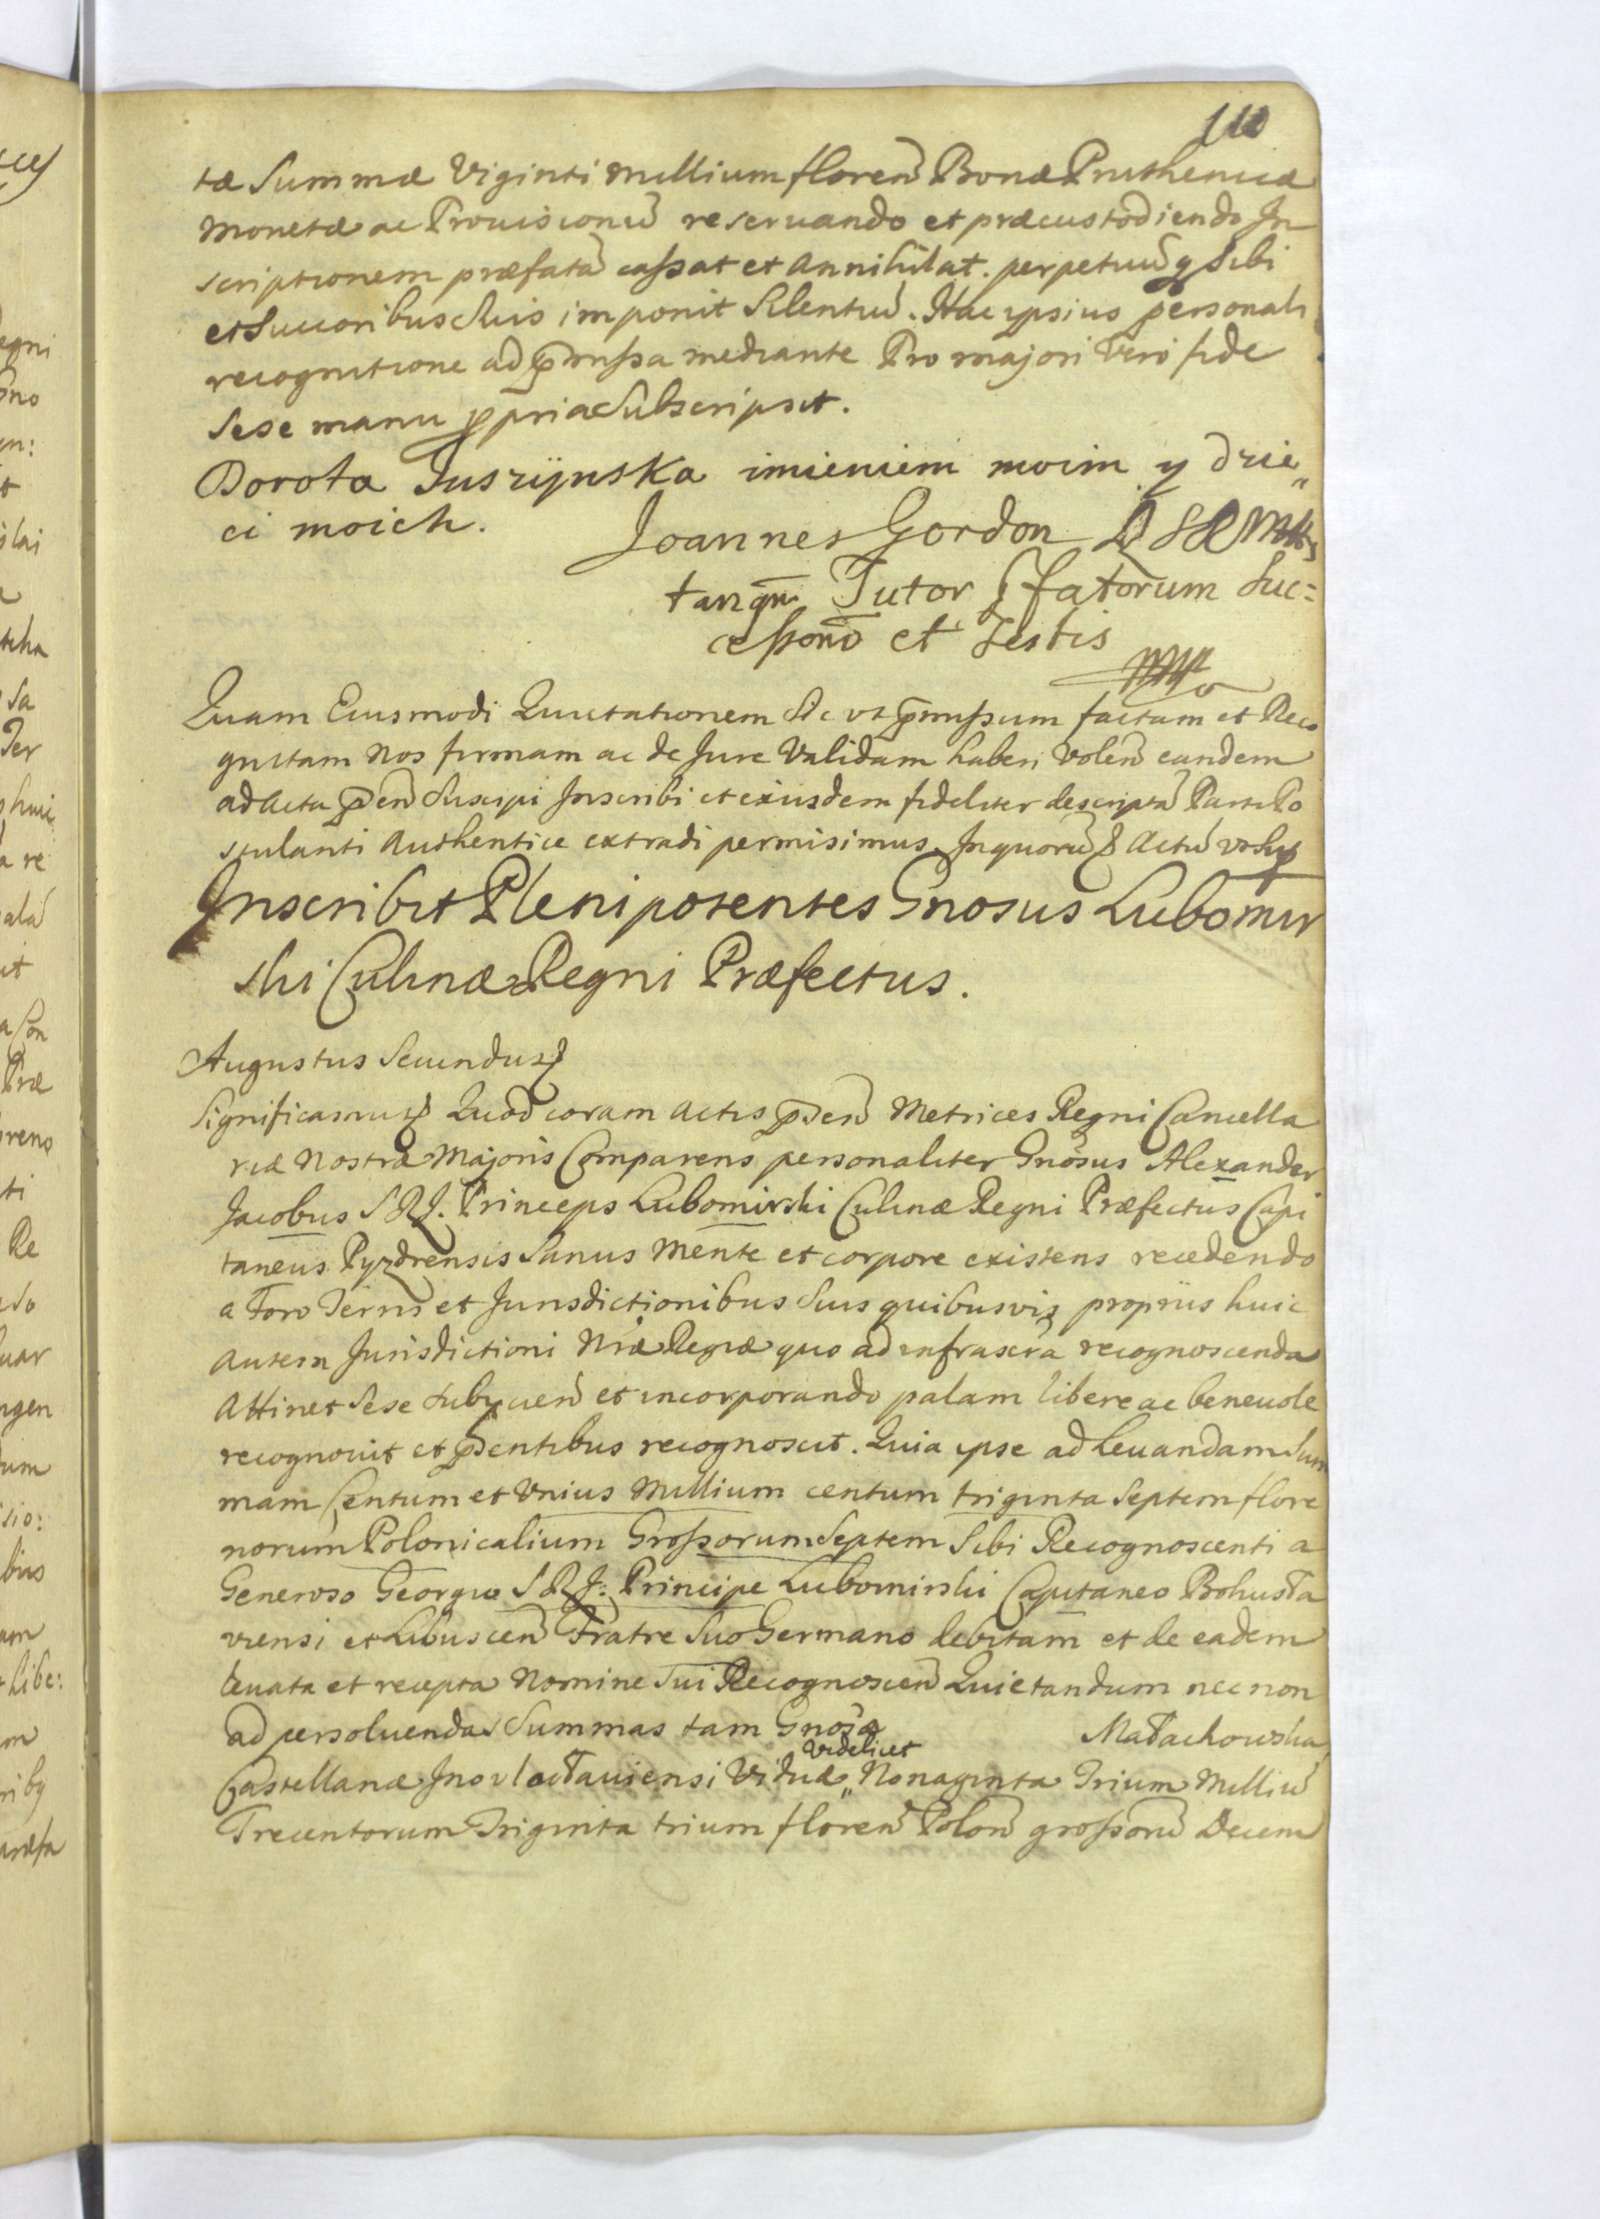 110
tæ Summæ Viginti Millium floreñ Bonæ Pruthenicæ
Monetæ ac Prouisionũ reseruando et præcustodiendo In
scriptionem præfatã cassat et Annihilat. perpetuũq Sibi
et Succoribus Suis imponit Silentiũ. Hac ipsius personali
recognitione ad p̃missa mediante Pro majori Vero fide
Sese manu ppria Subscripsit.
Dorota Juszÿnska imieniem moim y dzie„
ci moich.
Joannes Gordon
tanqm̃ Tutor pfatorum Suc=
cessorũ et Testis
Quam Eiusmodi Quietationem Sic vt p̃missum factam et Reco
gnitam Nos firmam ac de Jure Validam haberi Voleñ eandem
ad Acta p̃señ Suscipi Inscribi et eiusdem fideliter descriptã Parti Po
stulanti Authentice extradi permisimus. In quorũ Actũ vt Supr
Inscribit Plenipotentes Gnosus Lubomir
ski Culinæ Regni Præfectus.
Augustus Secundus
Significamus Quod coram Actis p̃señ Metrices Regni Cancella
riæ Nostræ Majoris Comparens personaliter Gnõsus Alexander
Jacobus S R J. Princeps Lubomirski Culinæ Regni Præfectus Capi
taneus Pyzdrensis Sanus Mente et corpore existens recedendo
a Foro Terris et Jurisdictionibus Suis quibusvis proprijs huic
Autem Jurisdictioni Nræ Regiæ quo ad infrascra recognoscenda
Attinet Sese Subijcieñ et incorporando palam libere ac beneuole
recognouit et p̃sentibus recognoscit. Quia ipse ad leuandam Sum
mam Centum et Vnius Millium centum triginta Septem flore
norum Polonicalium Grossorum Septem Sibi Recognoscenti a
Generoso Georgio S R J. Principe Lubomirski Capitaneo Bohusła
viensi et Libusceñ Fratre Suo Germano debitam et de eadem
leuata et recepta Nomine Sui Recognosceñ Quietandum nec non
ad persoluendas Summas tam Gnosæ Małachowska
Castellanæ Inovlocłauiensi Viduæ „ Videlicet Nonaginta Trium Milliũ
Trecentorum Triginta trium floreñ Poloñ grossorũ Decem